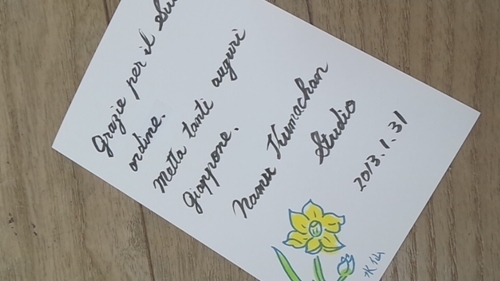 Grazie per il suo
ordine.
Metta tanti auguri
giappone.
Namu Kumachan
Studio
2013.1.31